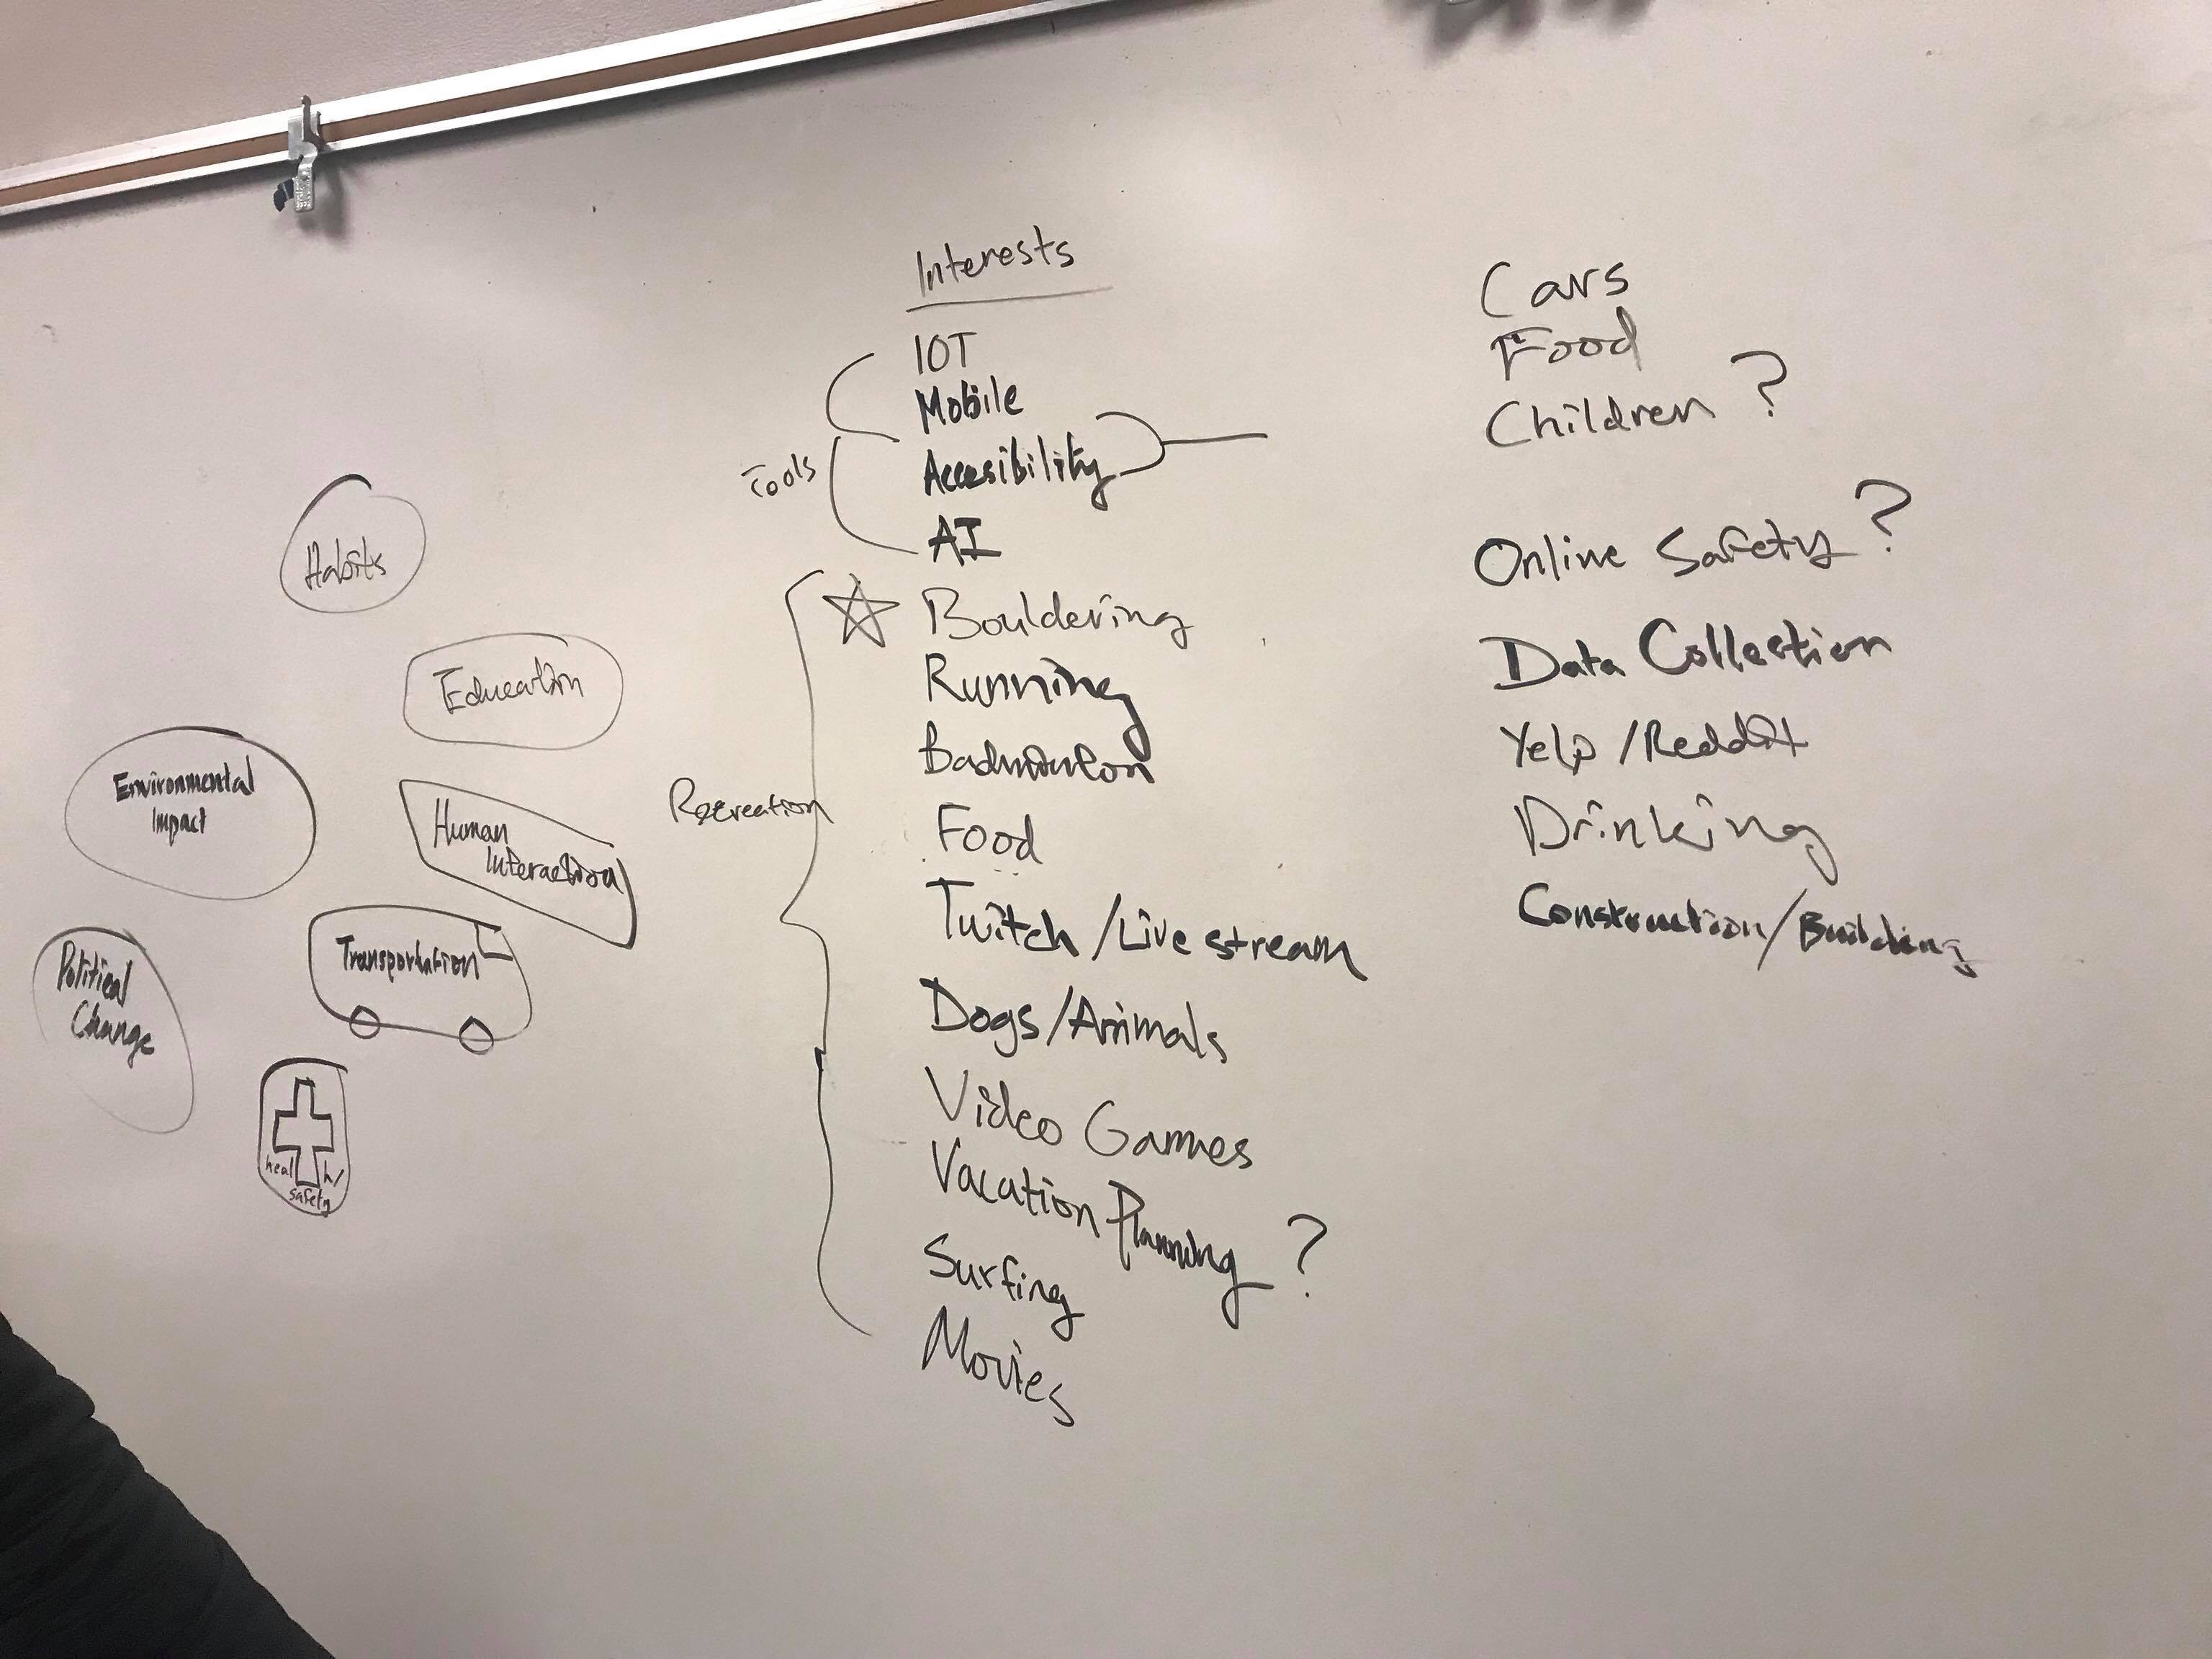 Habits
Education
Environmental
Impact
Human
Interaction
Transportation
Political
Change
heal h/
safety
Interests
IOT
Mobile
Tools
Accesibility
AI
Bouldering
Running
Badminton
Recreation
Food
Twitch / Live stream
Dogs/Animals
Video Games
Vacation Planning ?
Surfing
Movies
Cars
Food
Children ?
Online Safety ?
Data Collection
Yelp / Reddit
Drinking
Construction/Building